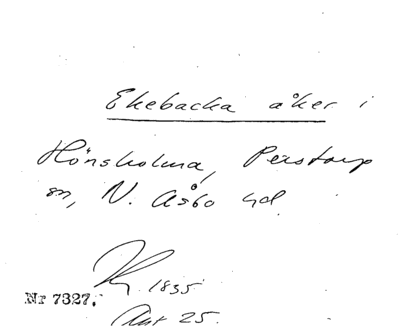 Ekebacka åker i
Hönsholma, Perstorp
sn, N. Åsbo hd
1835
Nr 7327.
Akt 25.